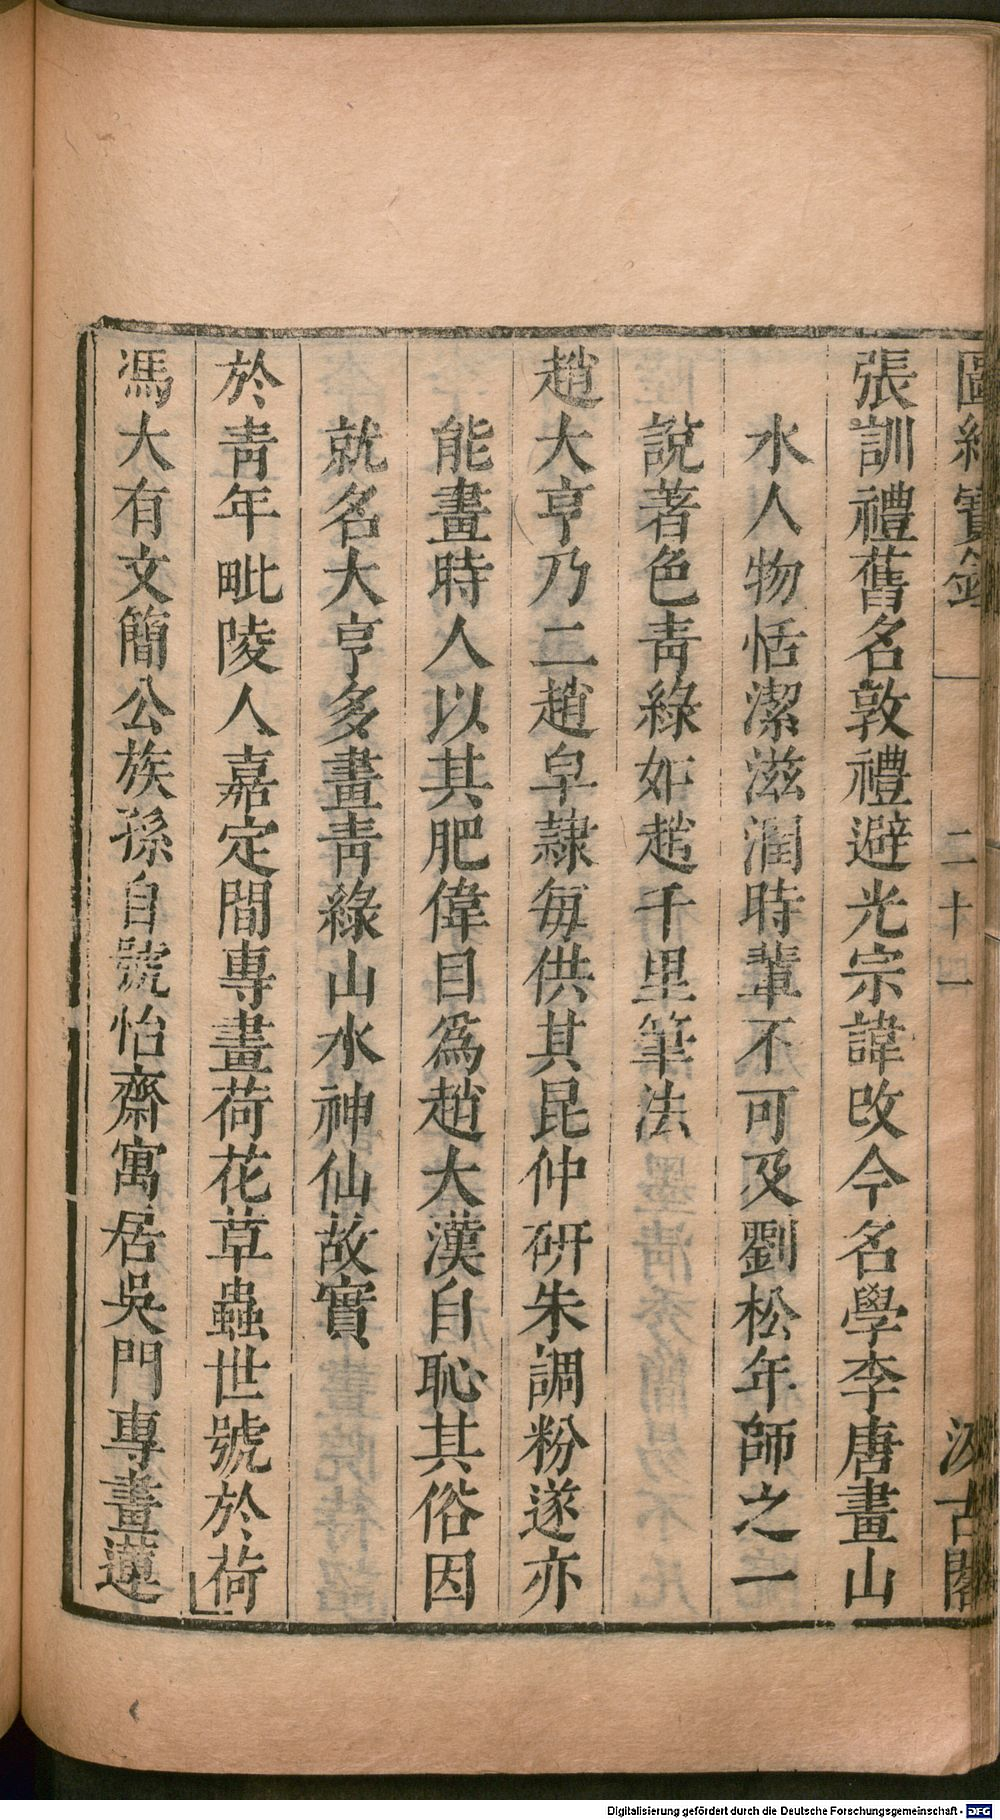 圖繪寶鑑
二十一
汲古閣
張訓禮舊名敦禮避光宗諱改今名學李唐畫山
水人物恬潔滋潤時輩不可及劉松年師之一
說著色靑綠如趙千里筆法
趙大亨乃二趙皁隷每供其昆仲硏朱調粉遂亦
能畫時人以其肥偉目爲趙大漢自恥其俗因
就名大亨多畫靑綠山水神仙故實
於靑年毗陵人嘉定間專畫荷花草蟲世號於荷
馮大有文簡公族孫自號怡齋寓居吳門專畫蓮
Digitalisierung gefördert durch die Deutsche Forschungsgemeinschaft - DFG